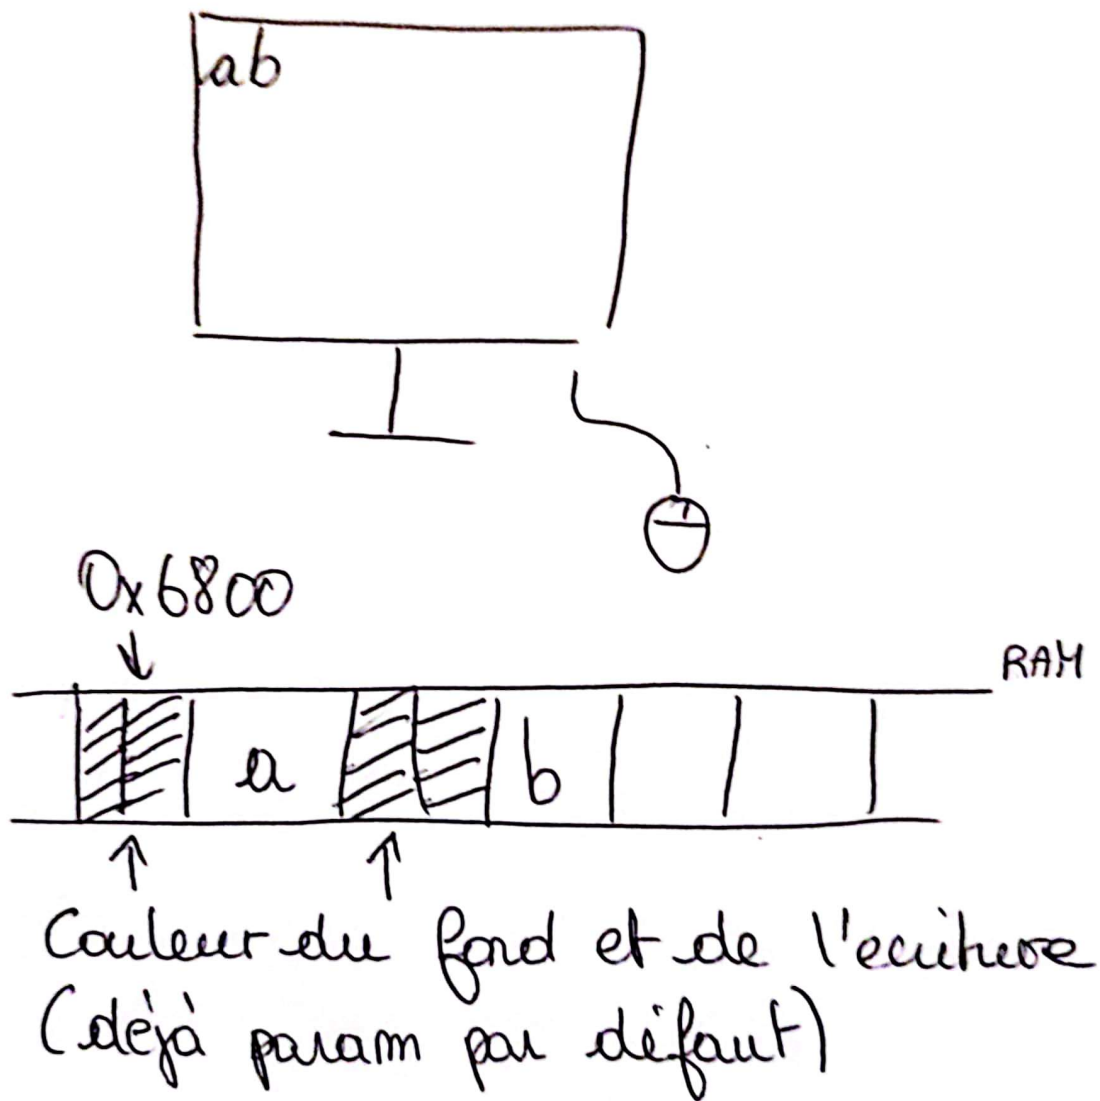 ab
0x6800
RAM
a b
Couleur du fond et de l'ecriture
(déjà param par défaut)